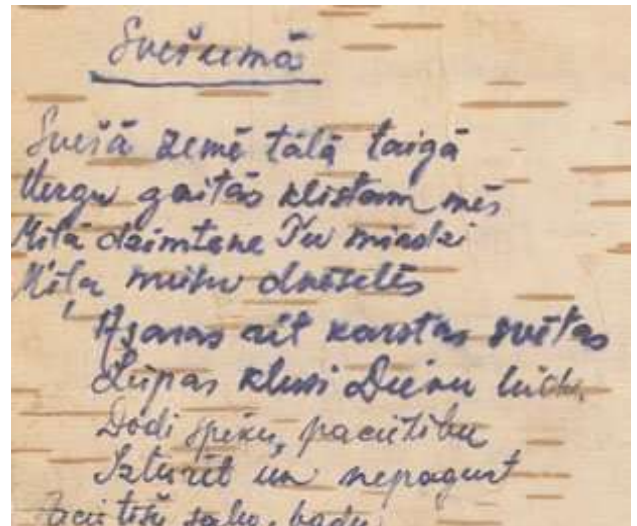 Svešumā
Svešā zemē tālā taigā
Vergu gaitās klīstam mēs
Mīļā dzimtene Tu mirdzi
Mīļa mūsu dvēselēs
Asaras rit karstas svētas
Lūpas klusi Dievu lūdz
Dodi spēku, pacietību
Izturēt un nepagurt
salu, badu